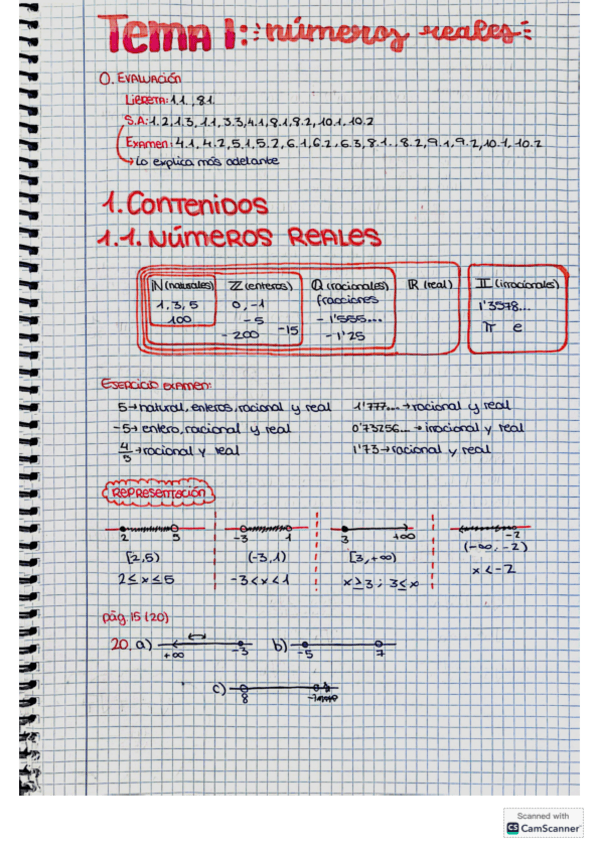 Tema 1: números reales
0. Evaluación
Libreta: 1.1., 8.1.
S.A: 1.2, 1.3, 1.1, 3.3, 4.1, 8.1, 9.2, 10.1, 10.2
Examen: 4.1, 4.2, 5.1, 5.2, 6.1, 6.2, 6.3, 8.1., 8.2, 9.1, 9.2, 10.1, 10.2
→ Lo explica más adelante
1. Contenidos
1.1. Números Reales
ℕ (naturales) ℤ (enteros) ℚ (racionales) ℝ (real) 𝕀 (irracionales)
1, 3, 5 0, -1 fracciones 1'3578...
100 -5 -1'555... π e
-200 -15 -1'25
Ejercicio examen:
5 → natural, enteros, racional y real 1'777... → racional y real
-5 → entero, racional y real 0'73256... → irracional y real
4/5 → racional y real 1'73 → racional y real
Representación
2 5 -3 1 3 +∞ -2
[2,5) (-3,1) [3,+∞) (-∞,-2)
2≤x≤5 -3<x<1 x≥3 ; 3≤x x<-2
pág. 15 (20)
20. a) +∞ -3 b) -5 7
c) 8
Scanned with
CS CamScanner